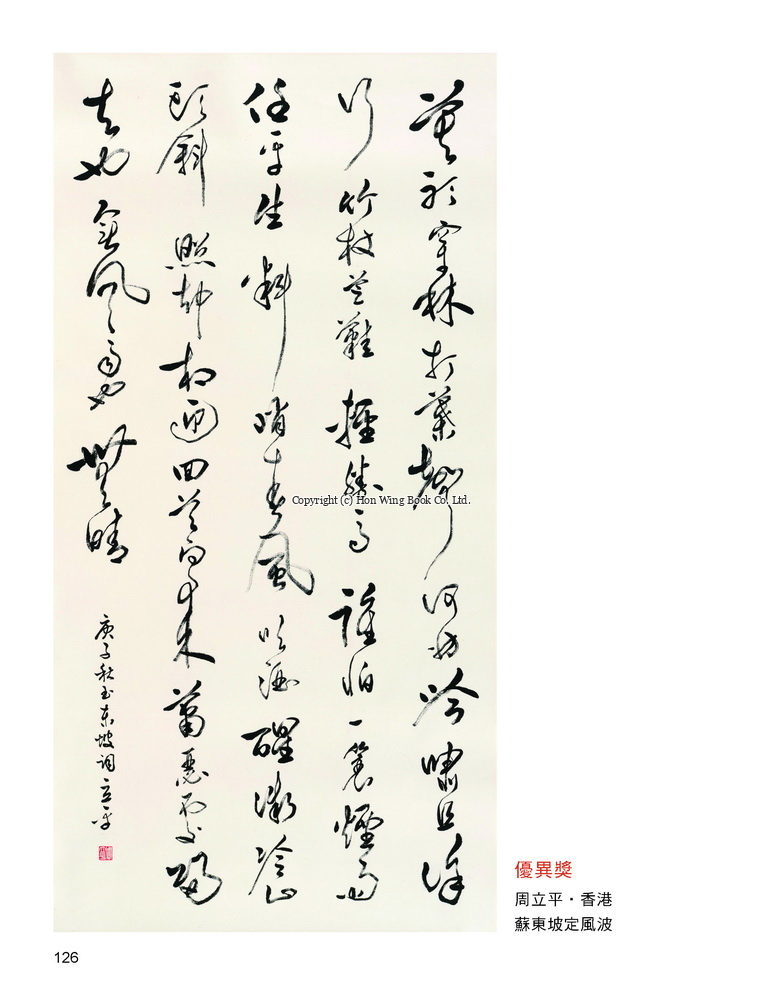 莫聽穿林打葉聲何妨吟嘯且徐
行竹杖芒鞋輕勝馬誰怕一蓑煙雨
任平生料峭春風吹酒醒微冷山
頭斜照却相迎回首向來蕭瑟處歸
去也無風雨也無晴
庚子秋书东坡词立平
Copyright (c) Hon Wing Book Co. Ltd.
優異獎
周立平・香港
蘇東坡定風波
126